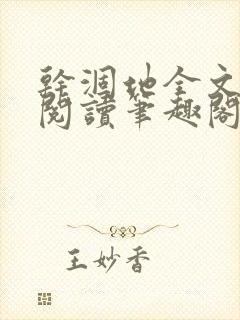 幹涸地全文
閱讀筆趣閣
王妙香